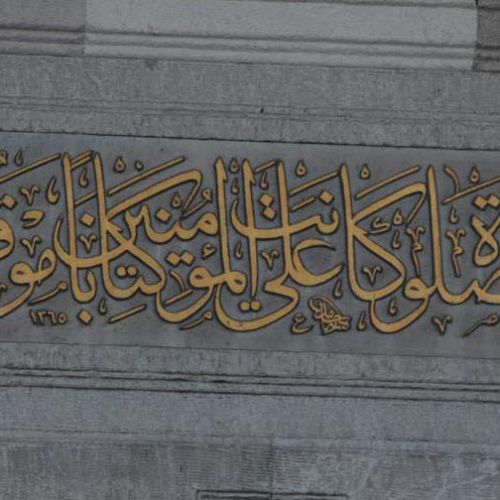 صلوة كانت على المؤمنين كتابًا موقو
١٣٦٥